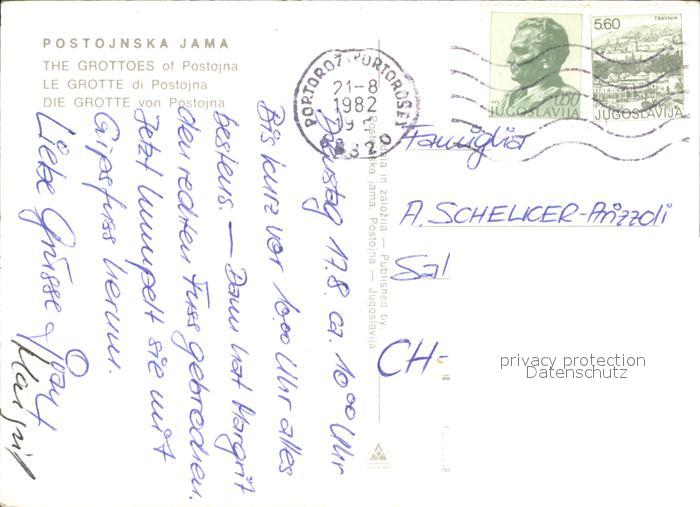 POSTOJNSKA JAMA
THE GROTTOES of Postojna
LE GROTTE di Postojna
DIE GROTTE von Postojna
PORTOROŽ - PORTOROSE
21-8
1982
JUGOSLAVIJA
5,60
TRAVNIK
JUGOSLAVIJA
Dienstag 17.8. ca. 10 00 Uhr
Bis kurz vor 10.00 Uhr alles
bestens. — Dann hat Margrit
den rechten Fuss gebrochen.
Jetzt humpelt sie mit
Gipsfuss herum.
Liebe Grüsse
Margrit
in založila — Published by:
jama, Postojna — Jugoslavija
Famiglia
A. SCHELKER-
CH-
privacy protection
Datenschutz